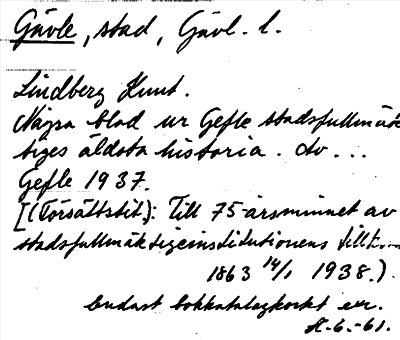 Gävle, stad, Gävl. l.
Lindberg Knut.
Några blad ur Gefle stadsfullmäk
tiges äldsta historia. Av ...
Gefle 1937.
[(Försättstit.): Till 75-årsminnet av
stadsfullmäktigeinstitutionens tillk...
1863 14/1 1938.)
Endast bokkatalogkort ex.
6.-61.